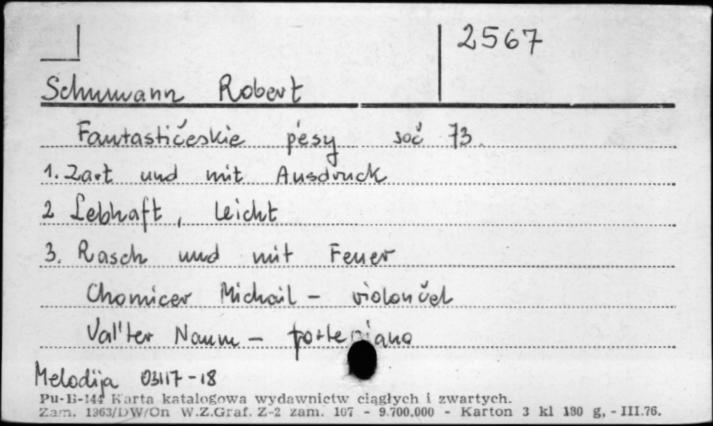 2567
Schumann Robert
Fantastičeskie p'esy soč 73.
1. Zart und mit Ausdruck
2 Lebhaft, Leicht
3. Rasch und mit Feuer
Chomicer Michail – violončel
Val'ter Naum – fortepiano
Melodija 03117-18
Pu-B-144 Karta katalogowa wydawnictw ciągłych i zwartych.
Zam. 1363/DW/On W.Z.Graf. Z-2 zam. 107 - 9.700.000 - Karton 3 kl 180 g, - III.76.